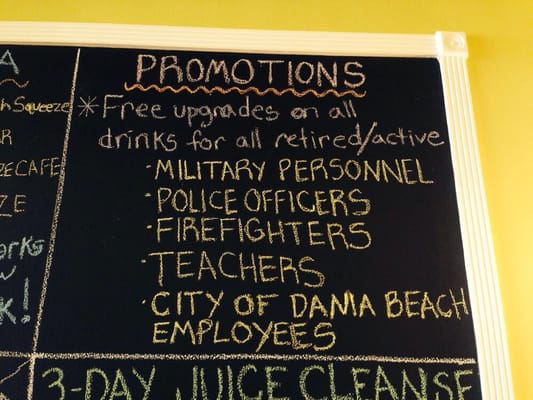 A
sh Squeeze
PROMOTIONS
* Free upgrades on all
drinks for all retired/active
· MILITARY PERSONNEL
· POLICE OFFICERS
· FIREFIGHTERS
· TEACHERS
· CITY OF DANIA BEACH
EMPLOYEES
3-DAY JUICE CLEANSE